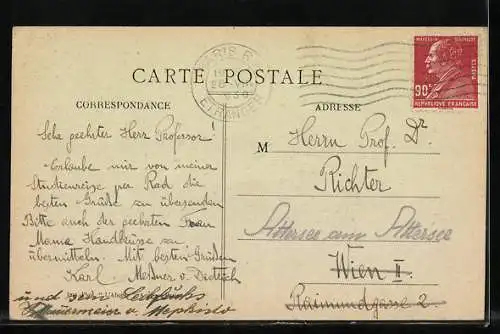 CARTE POSTALE
CORRESPONDANCE
ADRESSE
PARIS
ETRANGER
90c
POSTES
REPUBLIQUE FRANÇAISE
Sehr geehrter Herr Professor!
Erlaube mir von meiner
Studienreise per Rad die
besten Grüße zu übersenden
Bitte auch der geehrten Frau
Mama Handküsse zu
übermitteln. Mit besten Grüßen
Karl
und
v. Mephisto
M
Herrn Prof. Dr
Richter
Attersee am Attersee
Wien II
Raimundgasse 2.